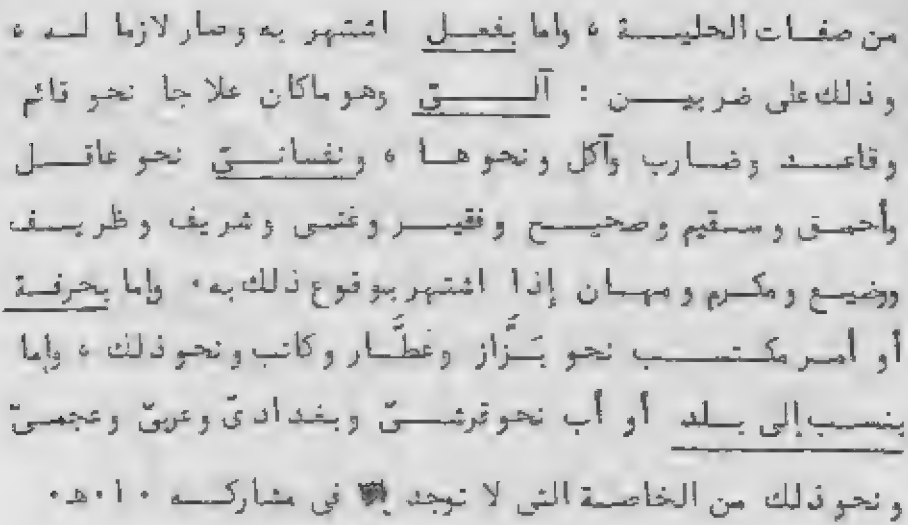 من صفات الحلية ، واما بفعل اشتهر به وصار لازما له ،
وذلك على ضربين : آلىّ وهو ماكان علاجا نحو قائم
وقاعد وضارب وآكل ونحوها ، ونفسانىّ نحو عاقل
وأحمق وسقيم وصحيح وفقير وغنى وشريف وظريف
ووضيع ومكرم ومهان إذا اشتهر بوقوع ذلك به ٠ واما بحرفة
أو أمر مكتسب نحو بَزَّاز وعَطَّار وكاتب ونحو ذلك ، واما
بنسب إلى بلد أو أب نحو قرشىّ وبغدادىّ وعربىّ وعجمىّ
ونحو ذلك من الخاصة التى لا توجد فى مشاركه ٠ ا ٠ هـ ٠